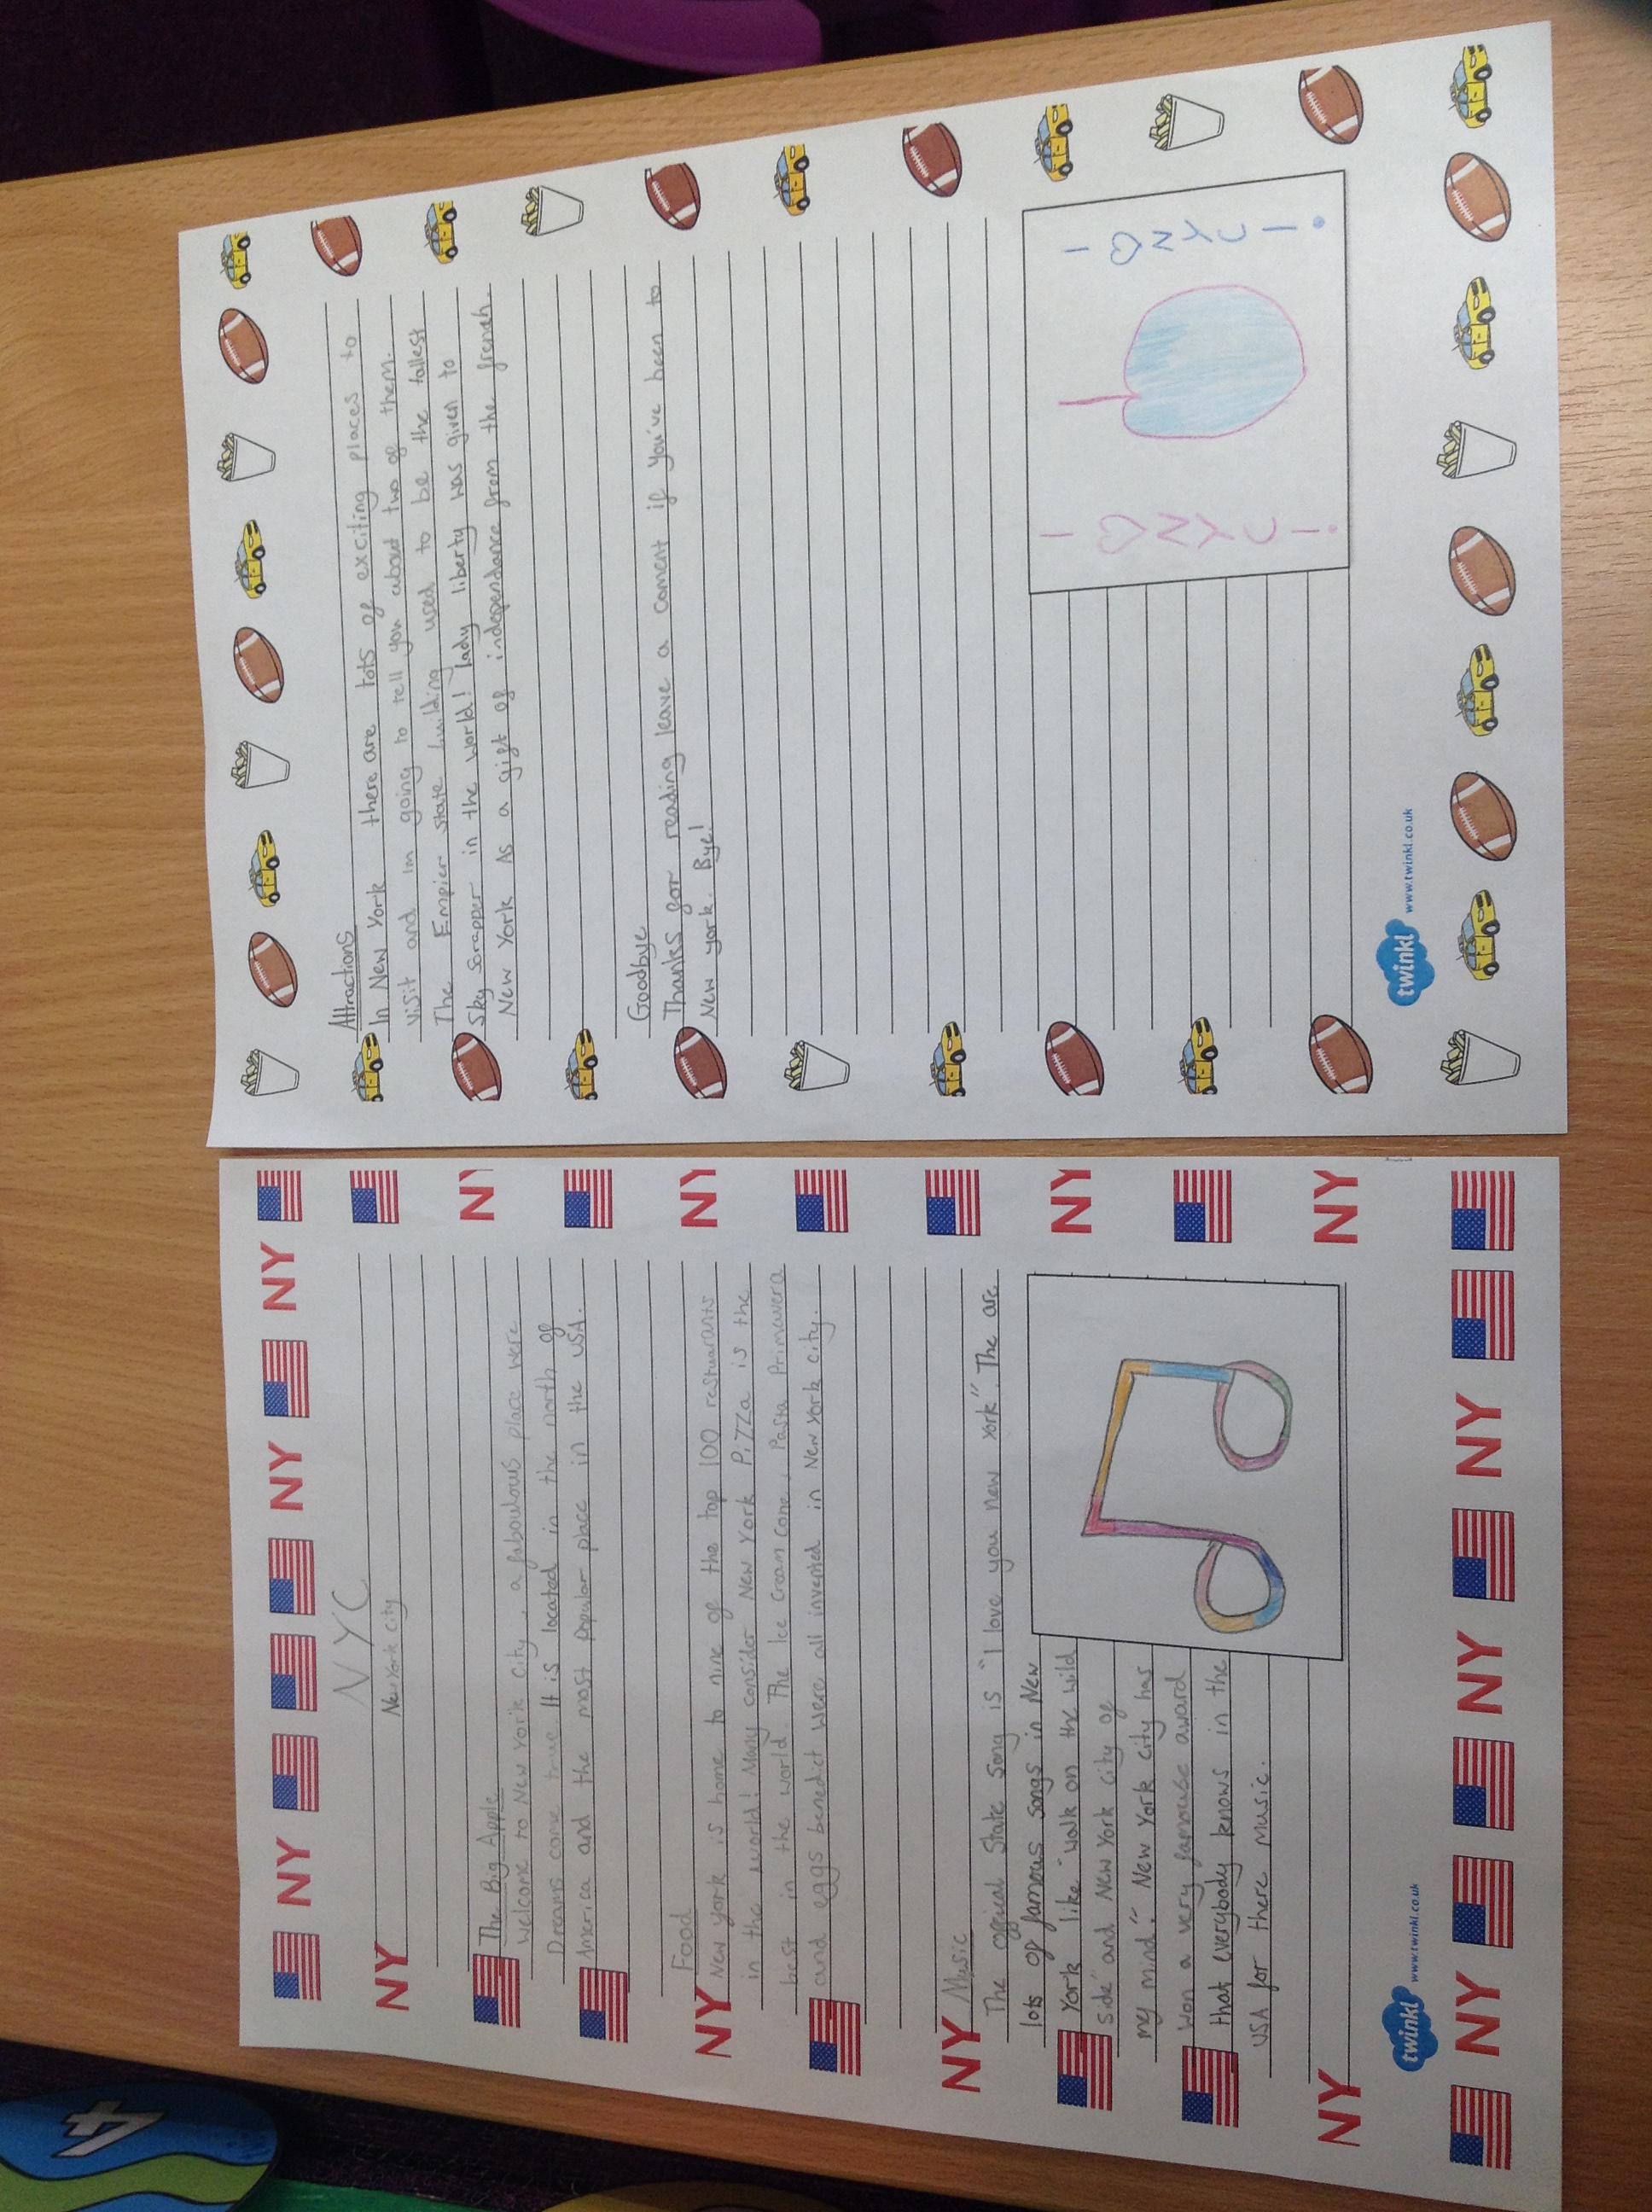 NY NY NY NY
NYC
New York City
NY
NY
The Big Apple
Welcome to New York City, a faboulous place were
Dreams come true It is located in the north of
America and the most Popular place in the USA.
Food
NY
NY
New york is home to nine of the top 100 restuarants
in the world! Many consider New York Pizza is the
best in the world. The Ice Cream Cone, Pasta Primavera
and eggs benedict were all invented in New York City.
Music
NY
The offical State Song is "I love you new york". The are
lots of famous songs in New
York like "walk on the wild
side" and New York City of
my mind." New York City has
won a very famouse award
that everybody knows in the
USA for there music.
NY
NY
NY
twinkl www.twinkl.co.uk
NY NY NY NY
Attractions
In New York there are lots of exciting places to
visit and im going to tell you about two of them.
The Empier state building used to be the tallest
Sky scrapper in the world! lady liberty was given to
New York As a gift of independance from the frenah.
Goodbye
Thanks for reading leave a coment if you've been to
New york. Bye!
I ♡ NYC !
I ♡ NYC !
twinkl www.twinkl.co.uk
4